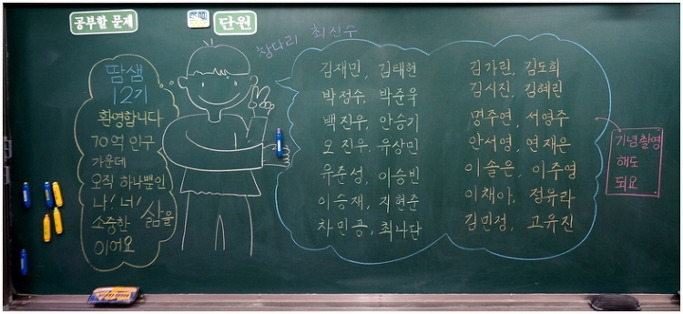 공부할 문제
단원
참나리 최진수
땀샘
12기
환영합니다
70억 인구
가운데
오직 하나뿐인
나! 너!
소중한 삶을
이어요
김재민, 김태현
박정수, 박준욱
백진우, 안승기
오진우, 유상민
유준성, 이승빈
이승재, 지현준
차민종, 최나단
김가린, 김도희
김시진, 김혜린
명주연, 서영주
안서영, 연재은
이솔은, 이주영
이채아, 정유라
김민정, 고유진
기념촬영
해도
되요